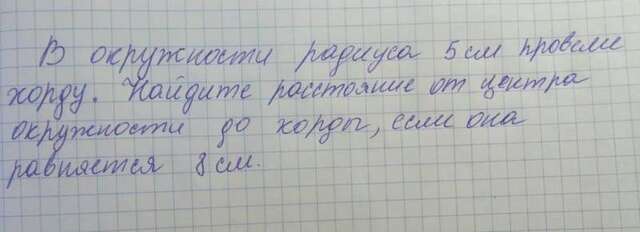 В окружности радиуса 5 см провели
хорду. Найдите расстояние от центра
окружности до хорды, если она
равняется 8 см.